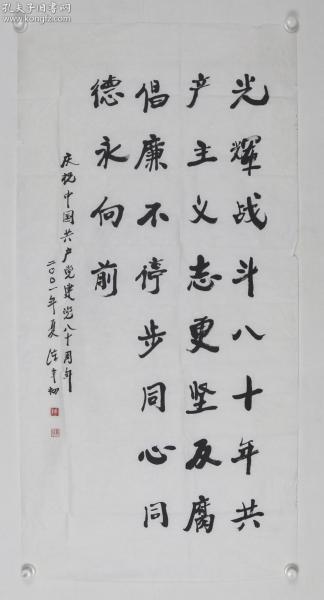 光辉战斗八十年共
产主义志更坚反腐
倡廉不停步同心同
德永向前
庆祝中国共产党建党八十周年
二〇〇一年夏
孔夫子旧书网